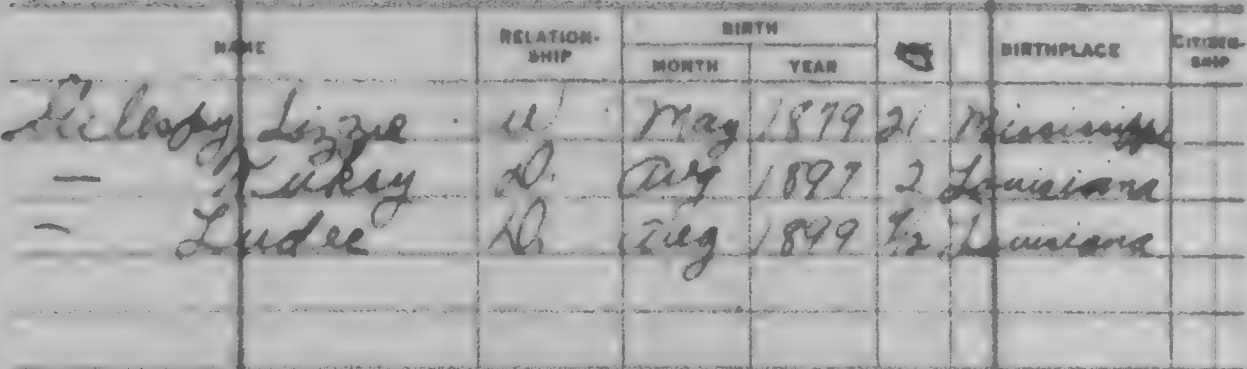 NAME RELATION-SHIP BIRTH MONTH YEAR BIRTHPLACE CITIZEN-SHIP
Lizzie W May 1879 21 Mississippi
— D. Aug 1897 2 Louisiana
— Ludee D. Aug 1899 1/2 Louisiana